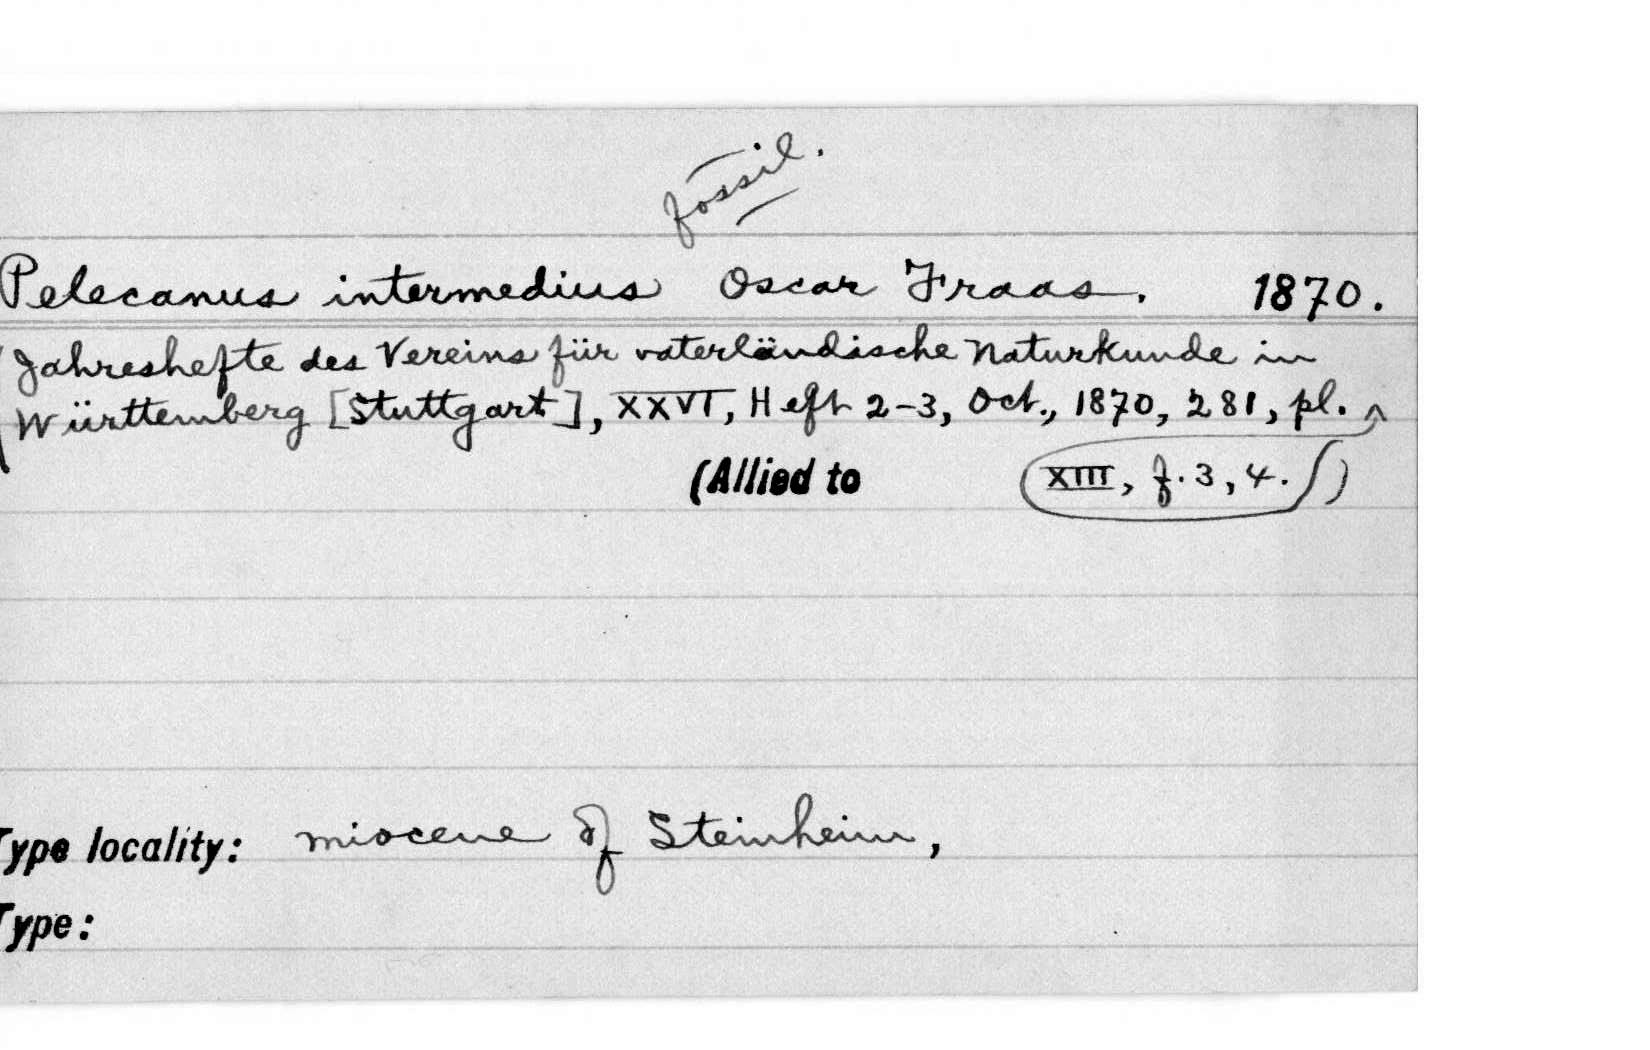 fossil.
Pelecanus intermedius Oscar Fraas. 1870.
(Jahreshefte des Vereins für vaterländische Naturkunde in
Württemberg [Stuttgart], XXVI, Heft 2-3, Oct., 1870, 281, pl. ^
(Allied to XIII, f. 3, 4. )
Type locality: miocene of Steinheim,
Type: